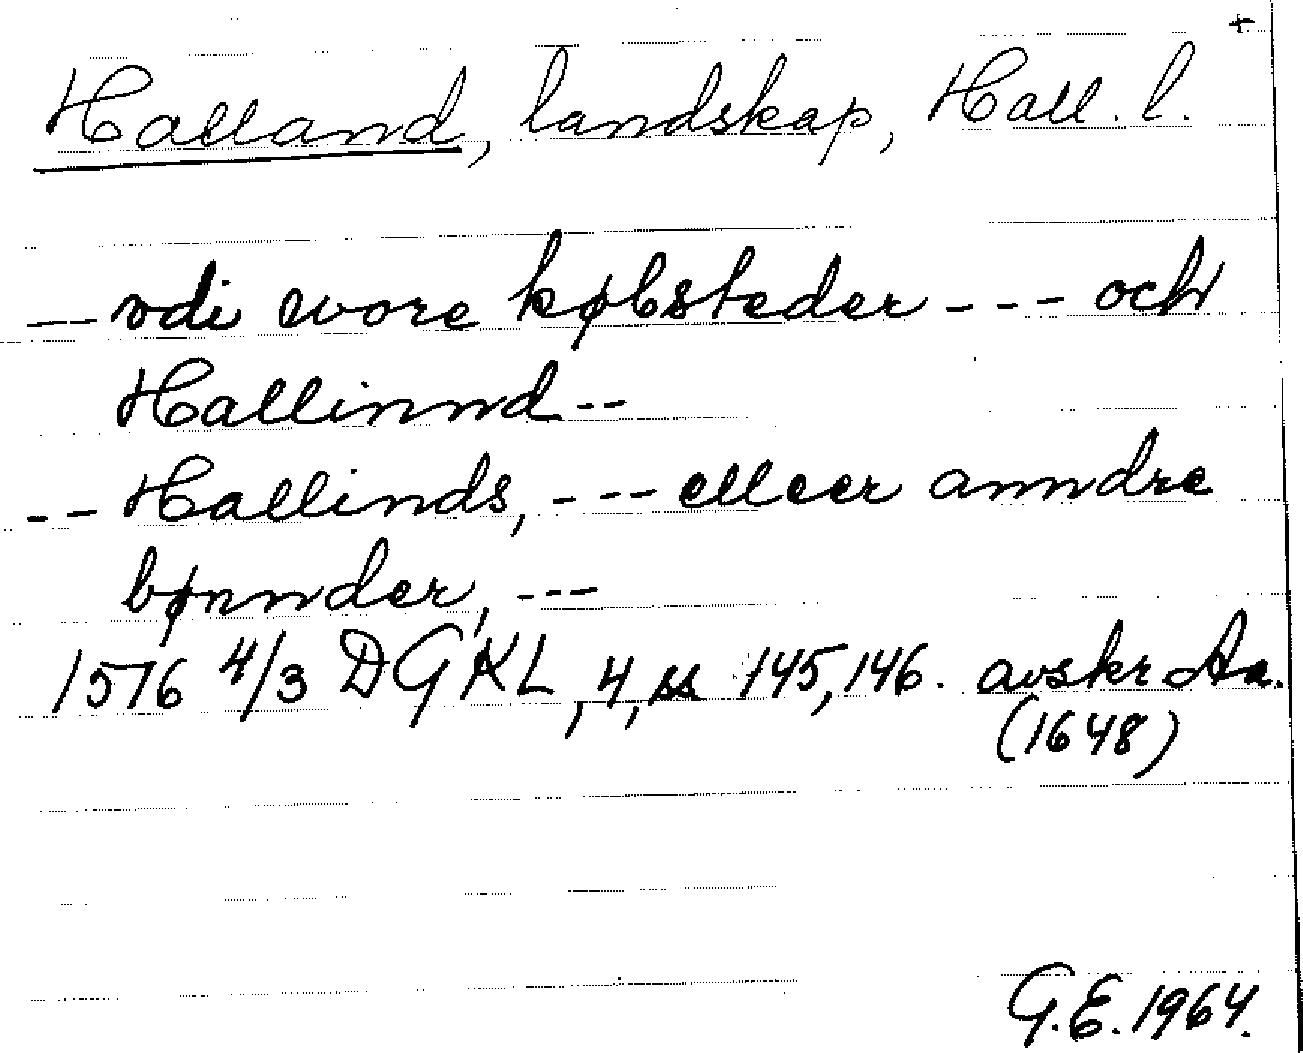 +
Halland, landskap, Hall. l.
-- vdi wore købsteder --- och
Hallinnd --
-- Hallinds, --- elleer anndre
bønnder, ---
1576 4/3 DGKL, 4, ss 145, 146. avskr Aa.
(1648)
G.E. 1964.